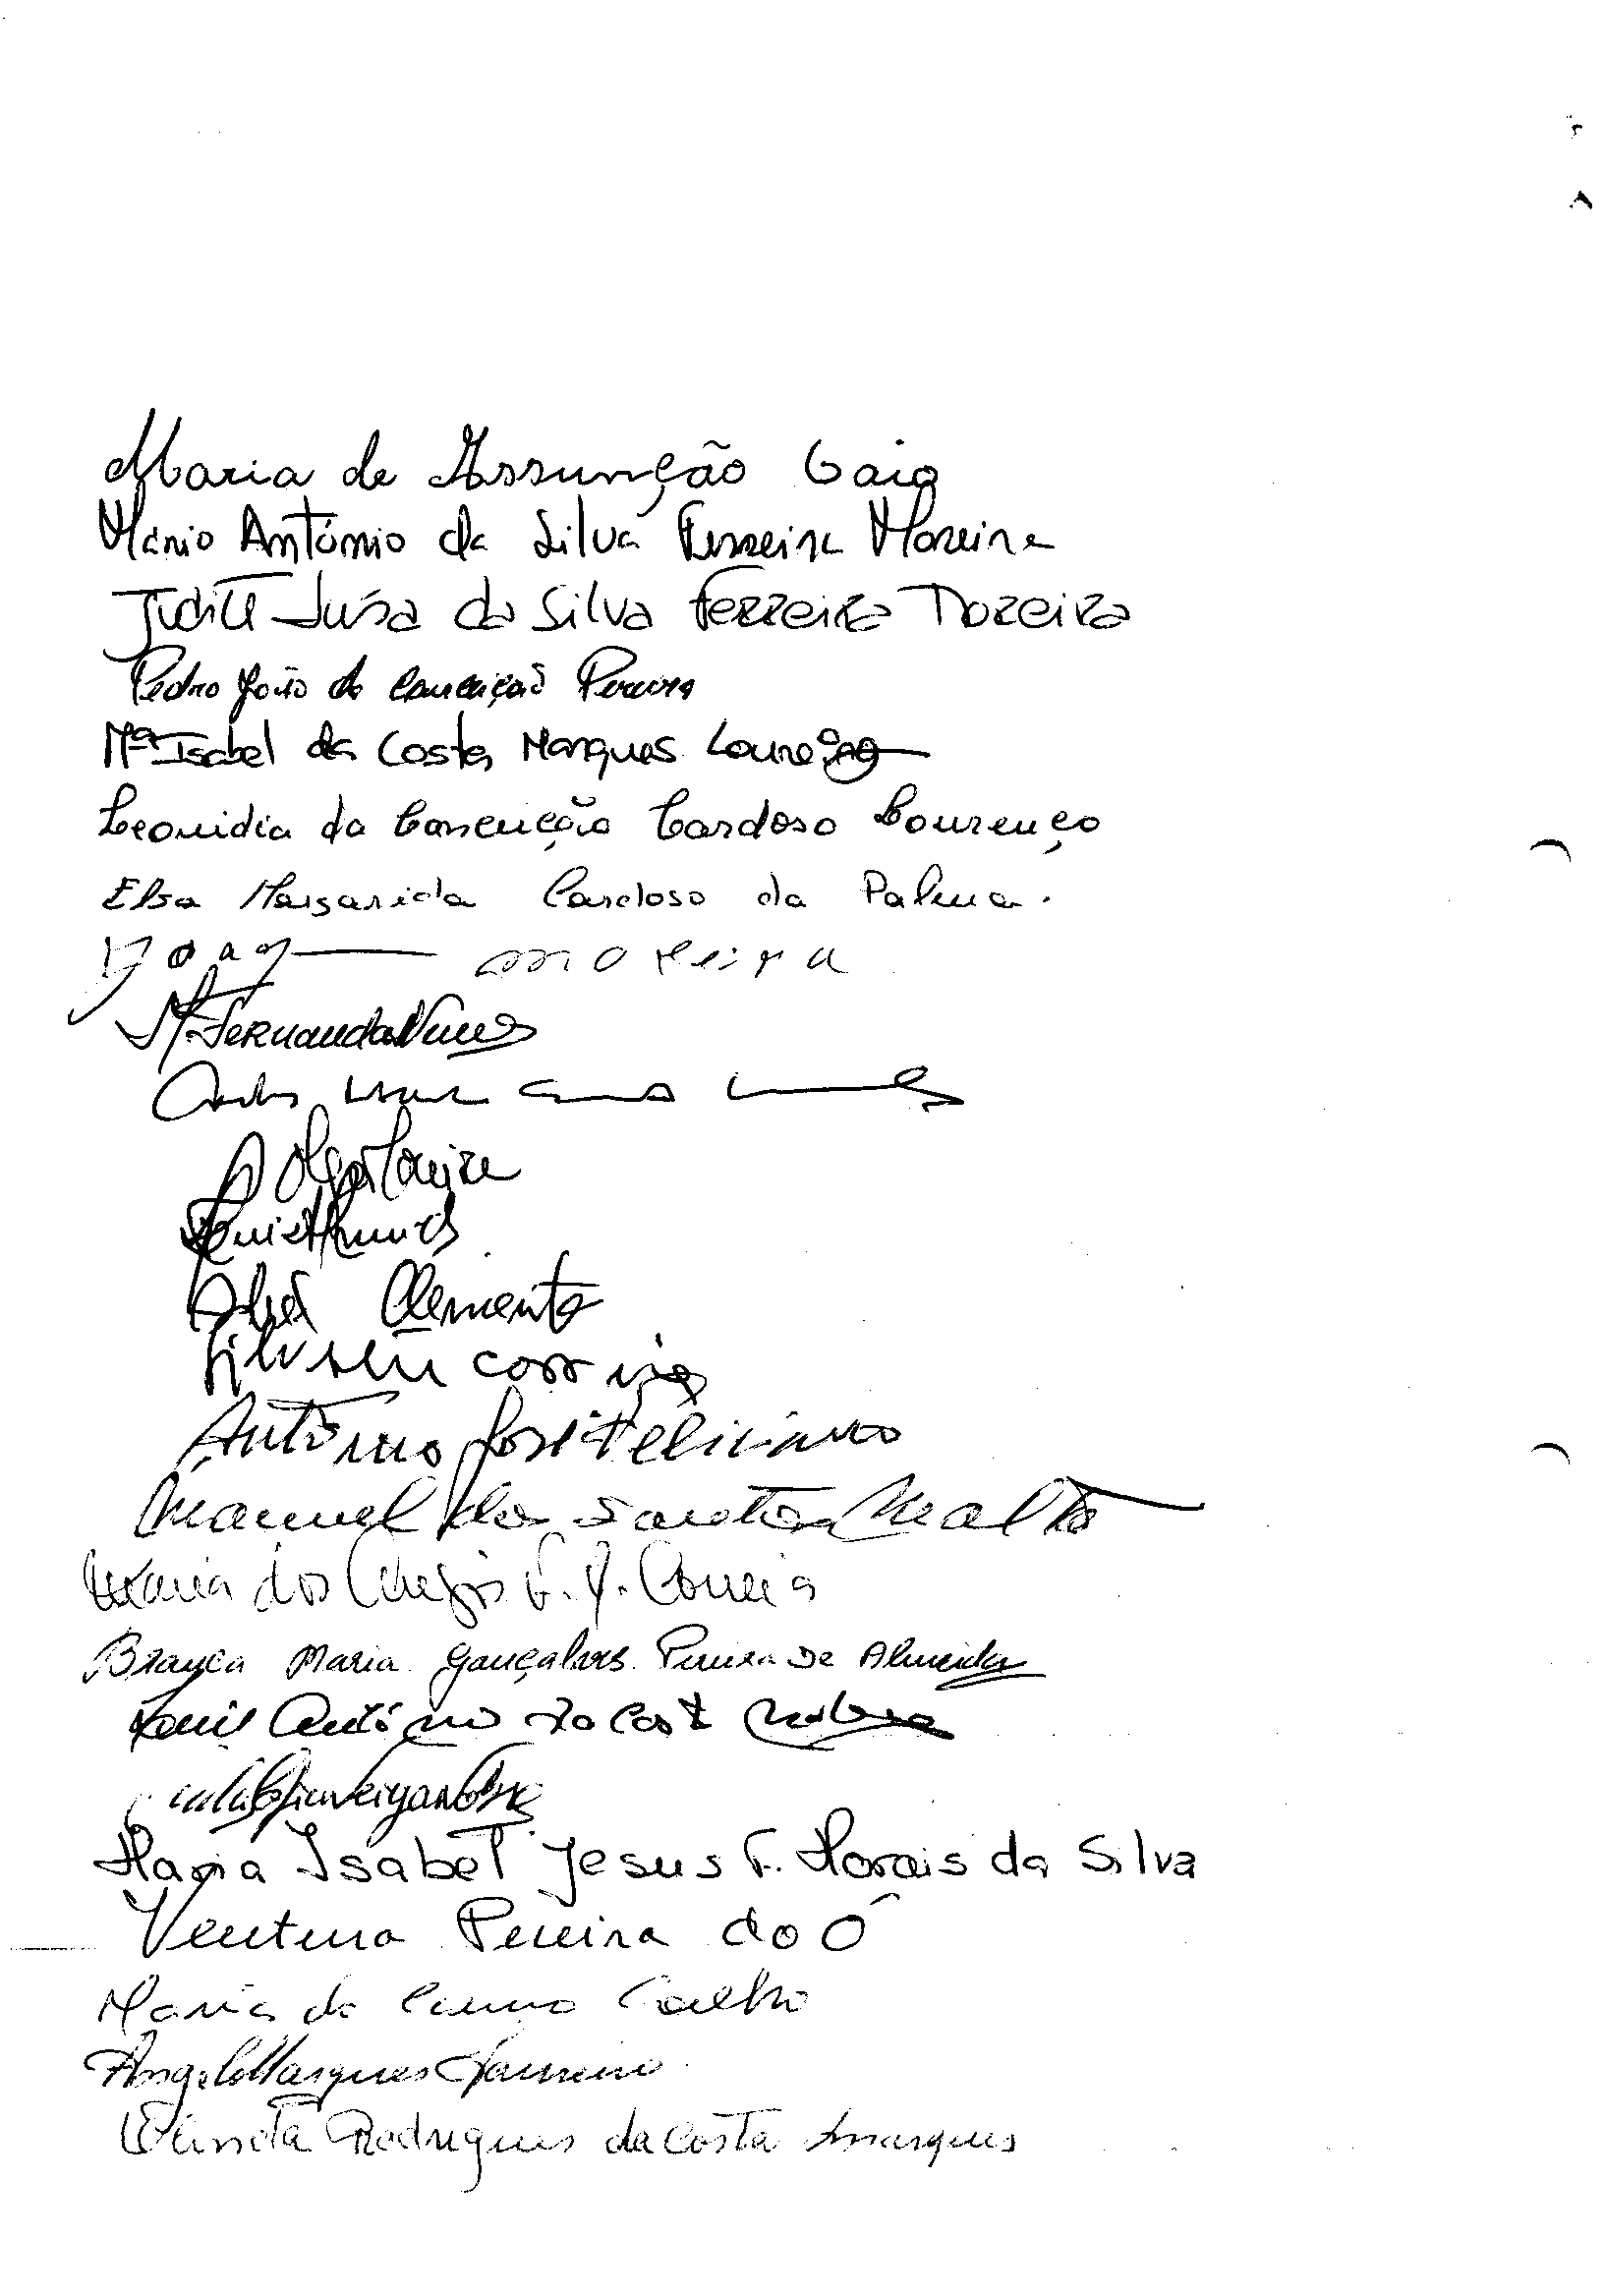 Maria de Assunção Gaio
Mário António da Silva Ferreira Moreira
Judite Luísa da Silva Ferreira Moreira
Pedro João da Conceição Pereira
Mª Isabel da Costa Marques Loureiro
Leonidia da Conceição Cardoso Lourenço
Elsa Margarida Cardoso da Palma.
Joaq moreira
M. Fernanda Nunes
Carlos
Olga
Nunes
Clemente
Correia
António José Feliciano
Manuel dos Santos Malta
Maria dos F. J. Correia
Branca Maria Gonçalves Pereira De Almeida
Luis António da Costa
Maria Isabel Jesus F. Morais da Silva
Ventura Pereira do Ó
Maria do Carmo Coelho
Angelo Marques Loureiro
Rodrigues da Costa Marques